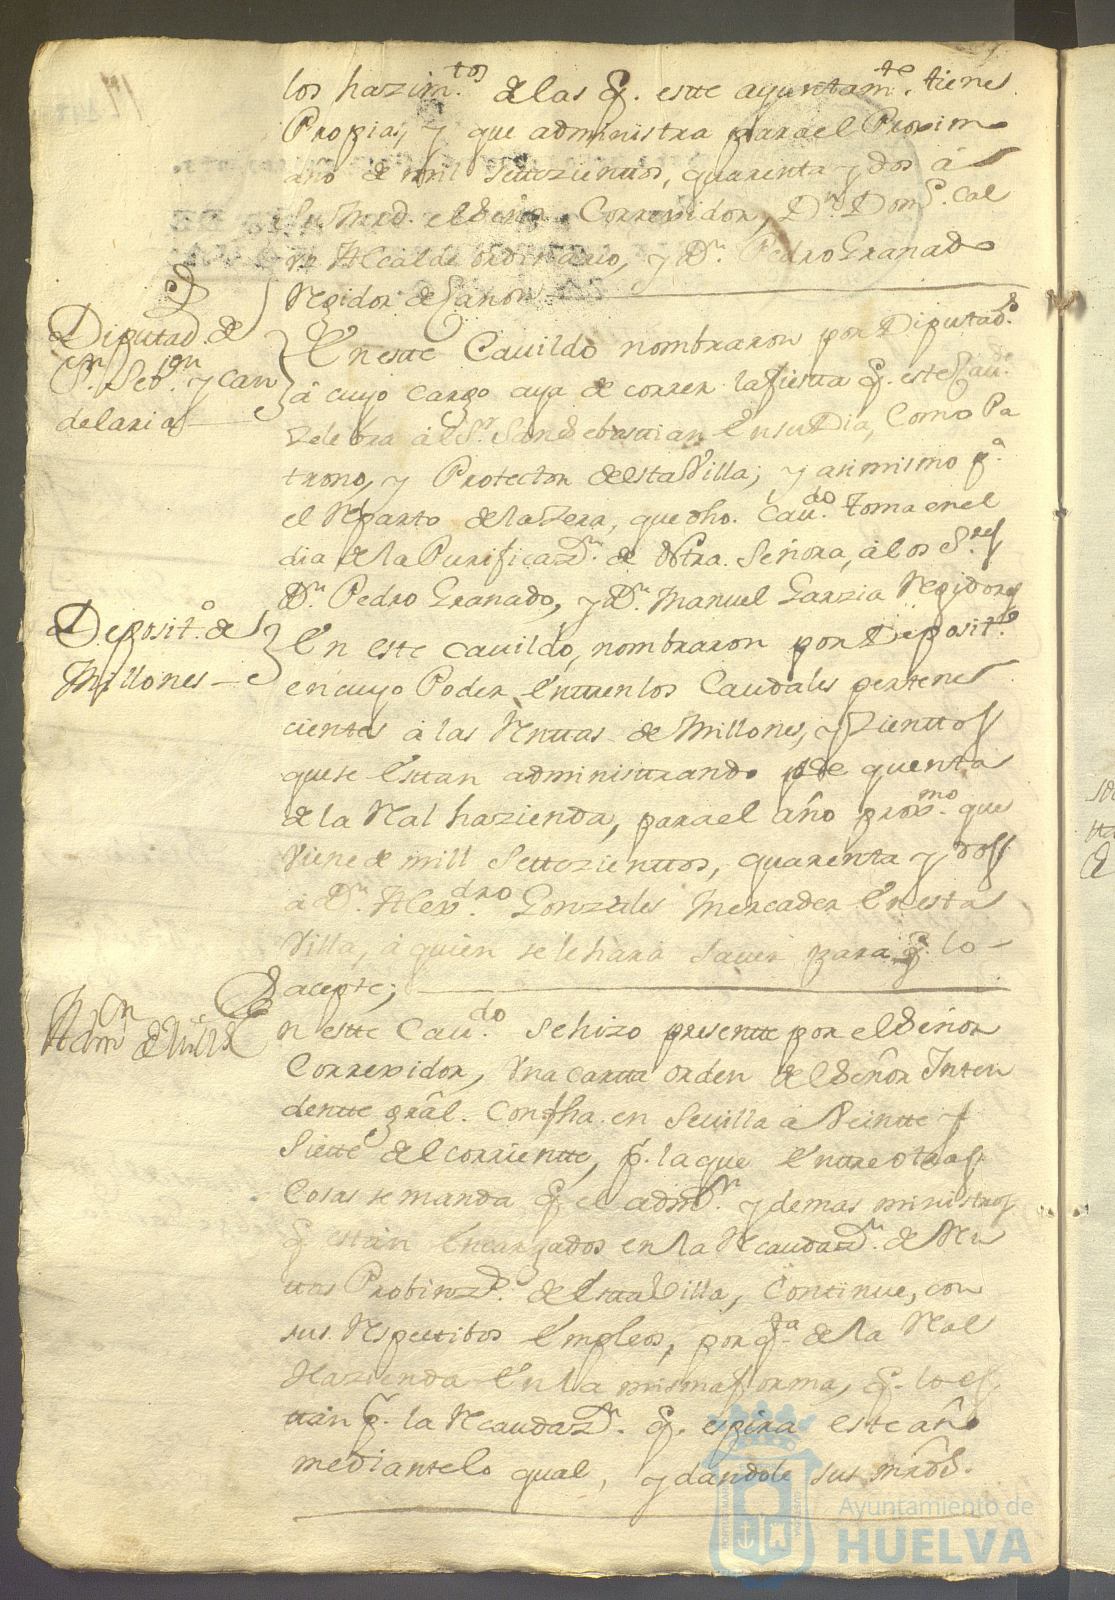 los hazim.tos de las q. este ayuntam.te tiene
Propias, y que administra para el Proximo
año de mil settezientos, quarenta y dos á
Su Mrd. el Señor Correxidor, Dn. Domg.o Cal
vo Alcalde ordinario, y Dn. Pedro Granado
Regidor de Canon
Diputad.s de
Sn. Seb.on y Can
delaria
En este Cavildo nombraron por Diputad.s
á cuyo cargo aya de correr la fiesta q. este Cau.do
zelebra ál Sr. San Sebastian En su Dia, Como Pa
trono, y Protector de esta Villa; y asimismo p.a
el Reparto de la Zera, que dho. Cau.do toma en el
dia de la Purificazn. de Ntra. Señora, á los S.res
Dn. Pedro Granado, y Dn. Manuel Garzia Regidores
Deposit.o de
Millones
En este cavildo, nombraron por Deposit.o
en cuyo Poder, Entren los Caudales pertene
cientes á las Rentas de Millones, y Zienttos
que se Esttan administrando de quenta
de la Ral hazienda, para el año prox.mo que
viene de mill settezienttos, quarenta y dos
á Dn. Alex.dro Gonzales Mercader En esta
Villa, á quien se le hará saver para q. lo
acepte;
Adm.on de Mill.s
En este Cau.do se hizo presentte por el Señor
Correxidor, Una cartta orden del Señor Inten
dentte grâl. Con fha. en Sevilla á Veintte y
siette del corrientte, p.r la que Entre otras
Cosas se manda q. el adm.or y demas ministros
q. estan Encargados en la Recaudazn. de Ren
ttas Probinz.s de Estta Villa, Continue, con
sus Respecttibos Empleos, por q.ta de la Real
Hazienda En la misma forma, q. lo es
ttan p.r la Recaudazn. q. espira este año
mediante lo qual, y dandole sus mrds.
Ayuntamiento de
HUELVA